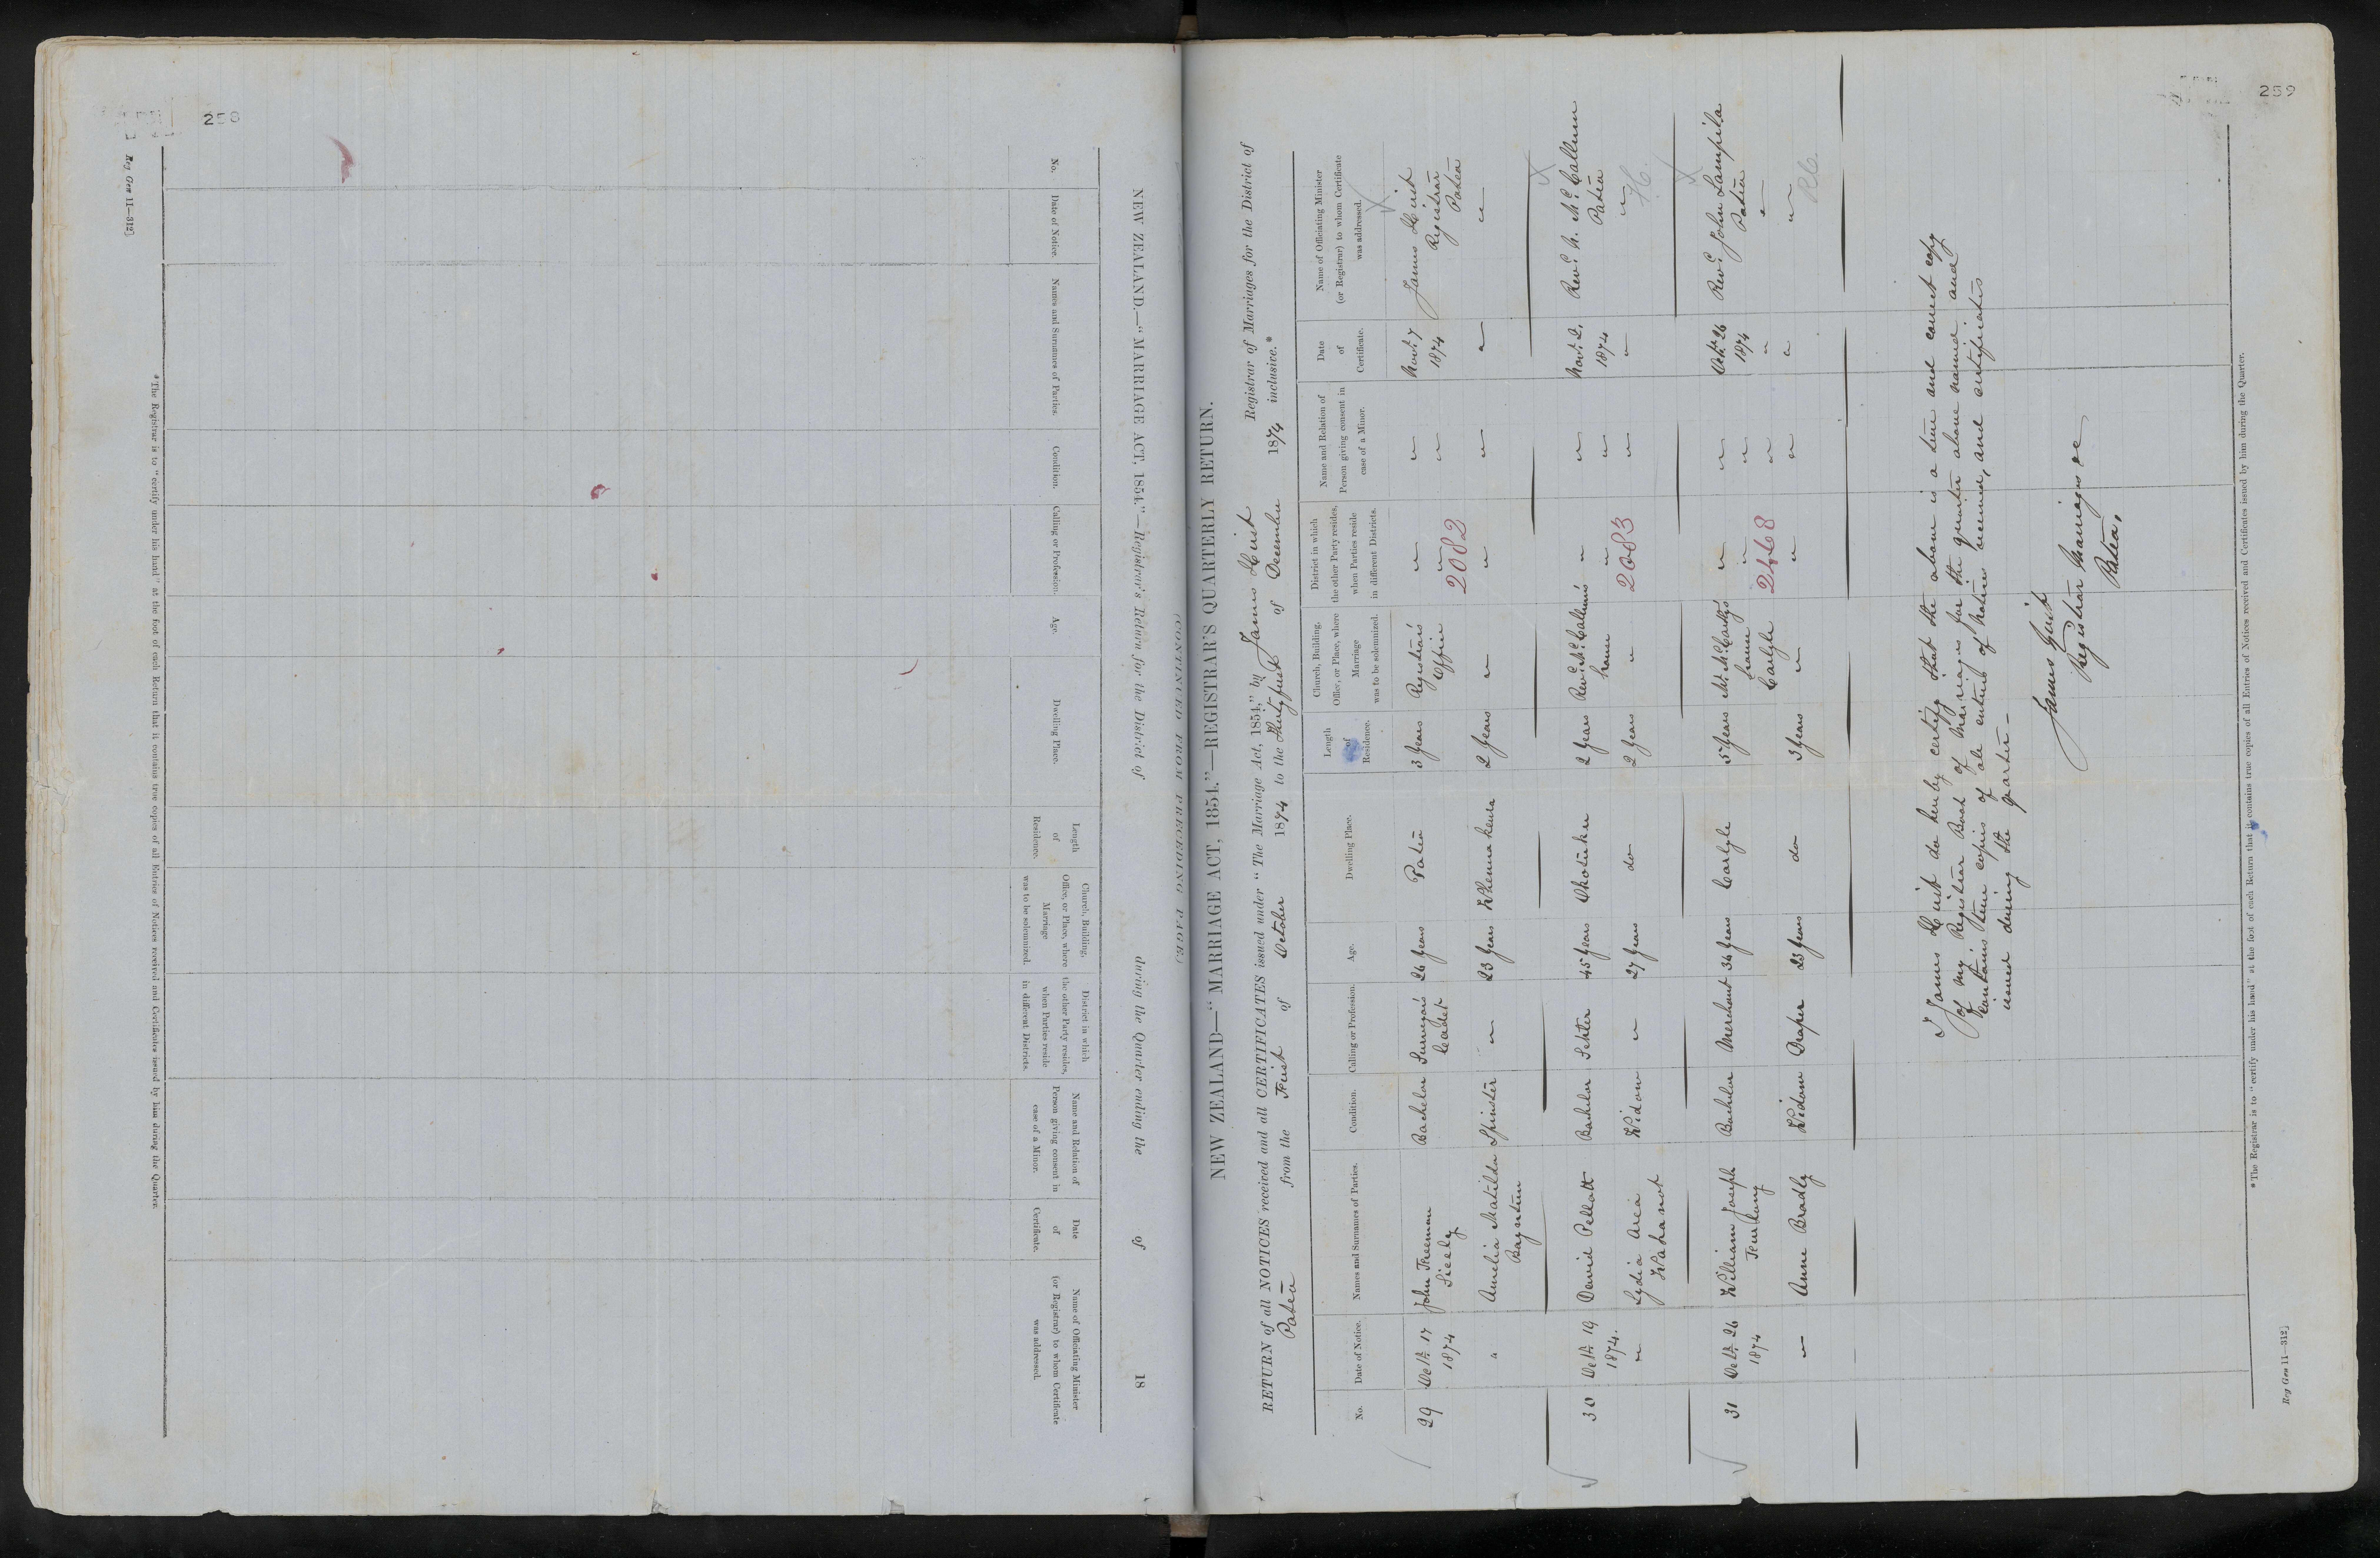 258
Reg Gen 11—312]
NEW ZEALAND.—"MARRIAGE ACT, 1854."—Registrar's Return for the District of during the Quarter ending the of 18
(CONTINUED FROM PRECEDING PAGE.)
No.
Date of Notice.
Names and Surnames of Parties.
Condition.
Calling or Profession.
Age.
Dwelling Place.
Length
of
Residence.
Church, Building,
Office, or Place, where
Marriage
was to be solemnized.
District in which
the other Party resides,
when Parties reside
in different Districts.
Name and Relation of
Person giving consent in
case of a Minor.
Date
of
Certificate.
Name of Officiating Minister
(or Registrar) to whom Certificate
was addressed.
*The Registrar is to "certify under his hand" at the foot of each Return that it contains true copies of all Entries of Notices received and Certificates issued by him during the Quarter.
259
NEW ZEALAND—"MARRIAGE ACT, 1854."—REGISTRAR'S QUARTERLY RETURN.
RETURN of all NOTICES received and all CERTIFICATES issued under "The Marriage Act, 1854," by James Hirst Registrar of Marriages for the District of
Patea from the First of October 1874 to the Thirty first of December 1874 inclusive.*
No.
Date of Notice.
Names and Surnames of Parties.
Condition.
Calling or Profession.
Age.
Dwelling Place.
Length
of
Residence.
Church, Building,
Office, or Place, where
Marriage
was to be solemnized.
District in which
the other Party resides,
when Parties reside
in different Districts.
Name and Relation of
Person giving consent in
case of a Minor.
Date
of
Certificate.
Name of Officiating Minister
(or Registrar) to whom Certificate
was addressed.
29 Octr. 17 John Freeman Bachelor Surveyor's 26 Years Patea 3 Years Registrar's " " Novr. 7 James Hirst
1874 Sicely Cadet Office " " 1874 Registrar
2082 Patea
" Amelia Matilda Spinster " 23 Years 2 Years " " " " "
30 Octr. 19 David Pellatt Bachelor Settler 45 Years 2 Years Revd. McCallum's " " Novr. 2. Revd. McCallum
1874. house " " 1874 Patea
" Lydia Widow " 27 Years do 2 Years " 2083 " " "
31 Octr. 26 William Joseph Bachelor Merchant 36 Years Carlyle 5 Years Mr. McCarty's " " Octr. 26 Revd. John
1874 house " " 1874 Patea
Carlyle 2468 " " "
" Anne Bradly Widow Draper 23 Years do 3 Years " " " " "
R.C.
I James Hirst do hereby certify that the above is a true and correct copy
of my Register Book of Marriages for the quarter above named and
contains true copies of all entries of notices received, and certificates
issued during the quarter—
James Hirst
Registrar Marriages &c
Patea.
*The Registrar is to "certify under his hand" at the foot of each Return that it contains true copies of all Entries of Notices received and Certificates issued by him during the Quarter.
Reg Gen 11—312]